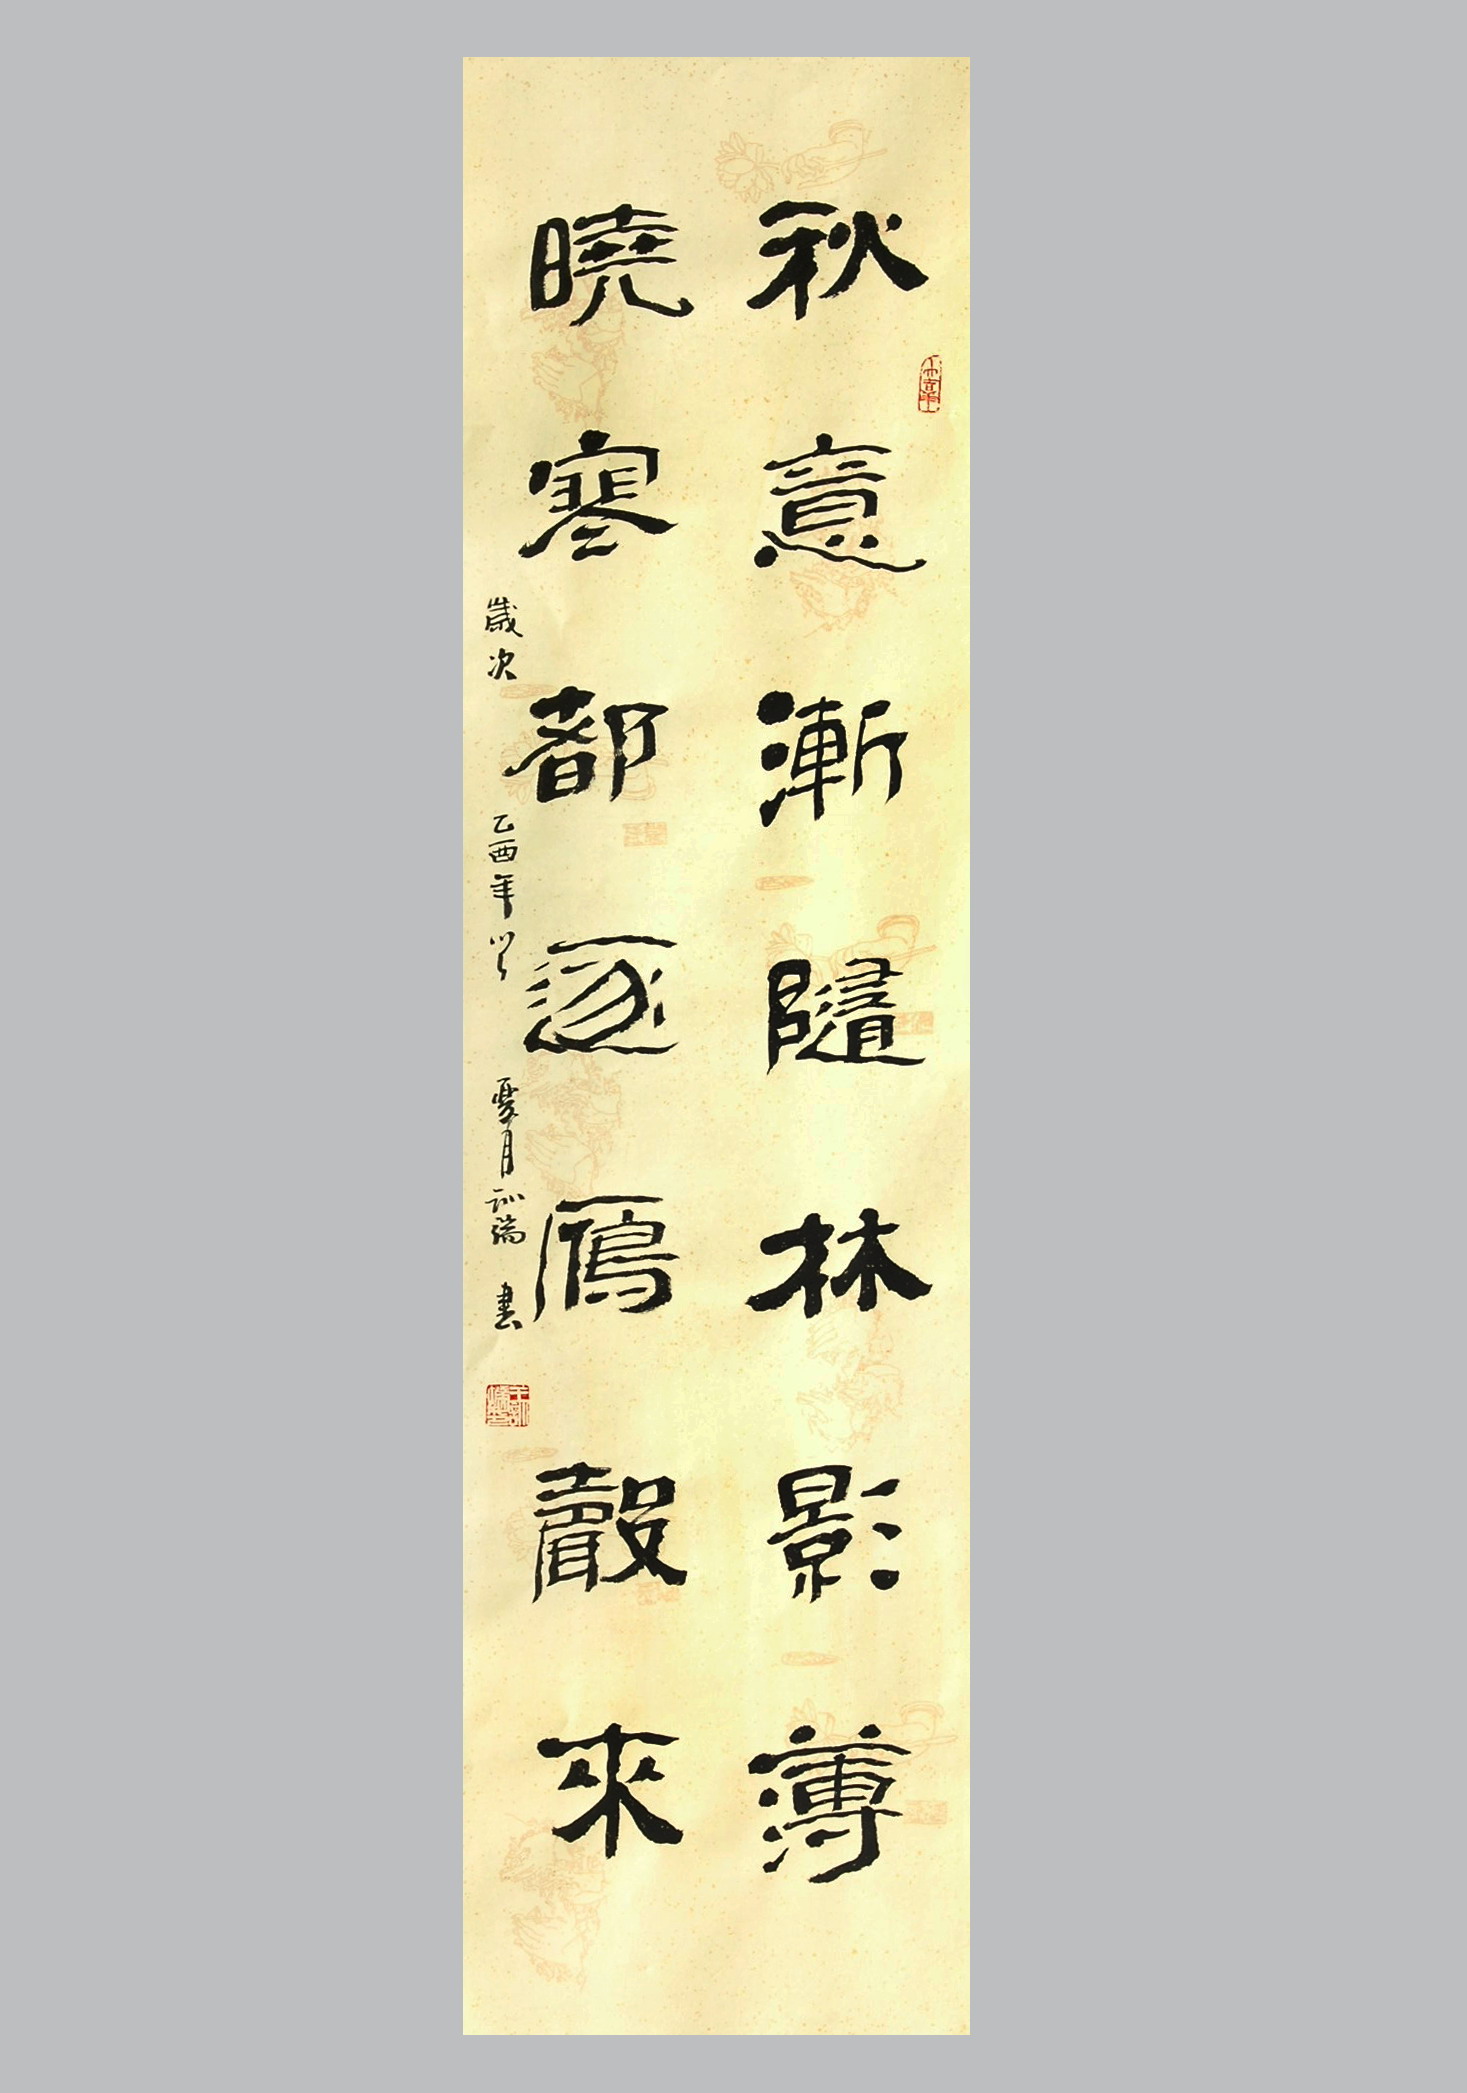 秋意漸隨林影薄
曉寒都逐雁聲來
歲次乙酉年
夏月訓端書